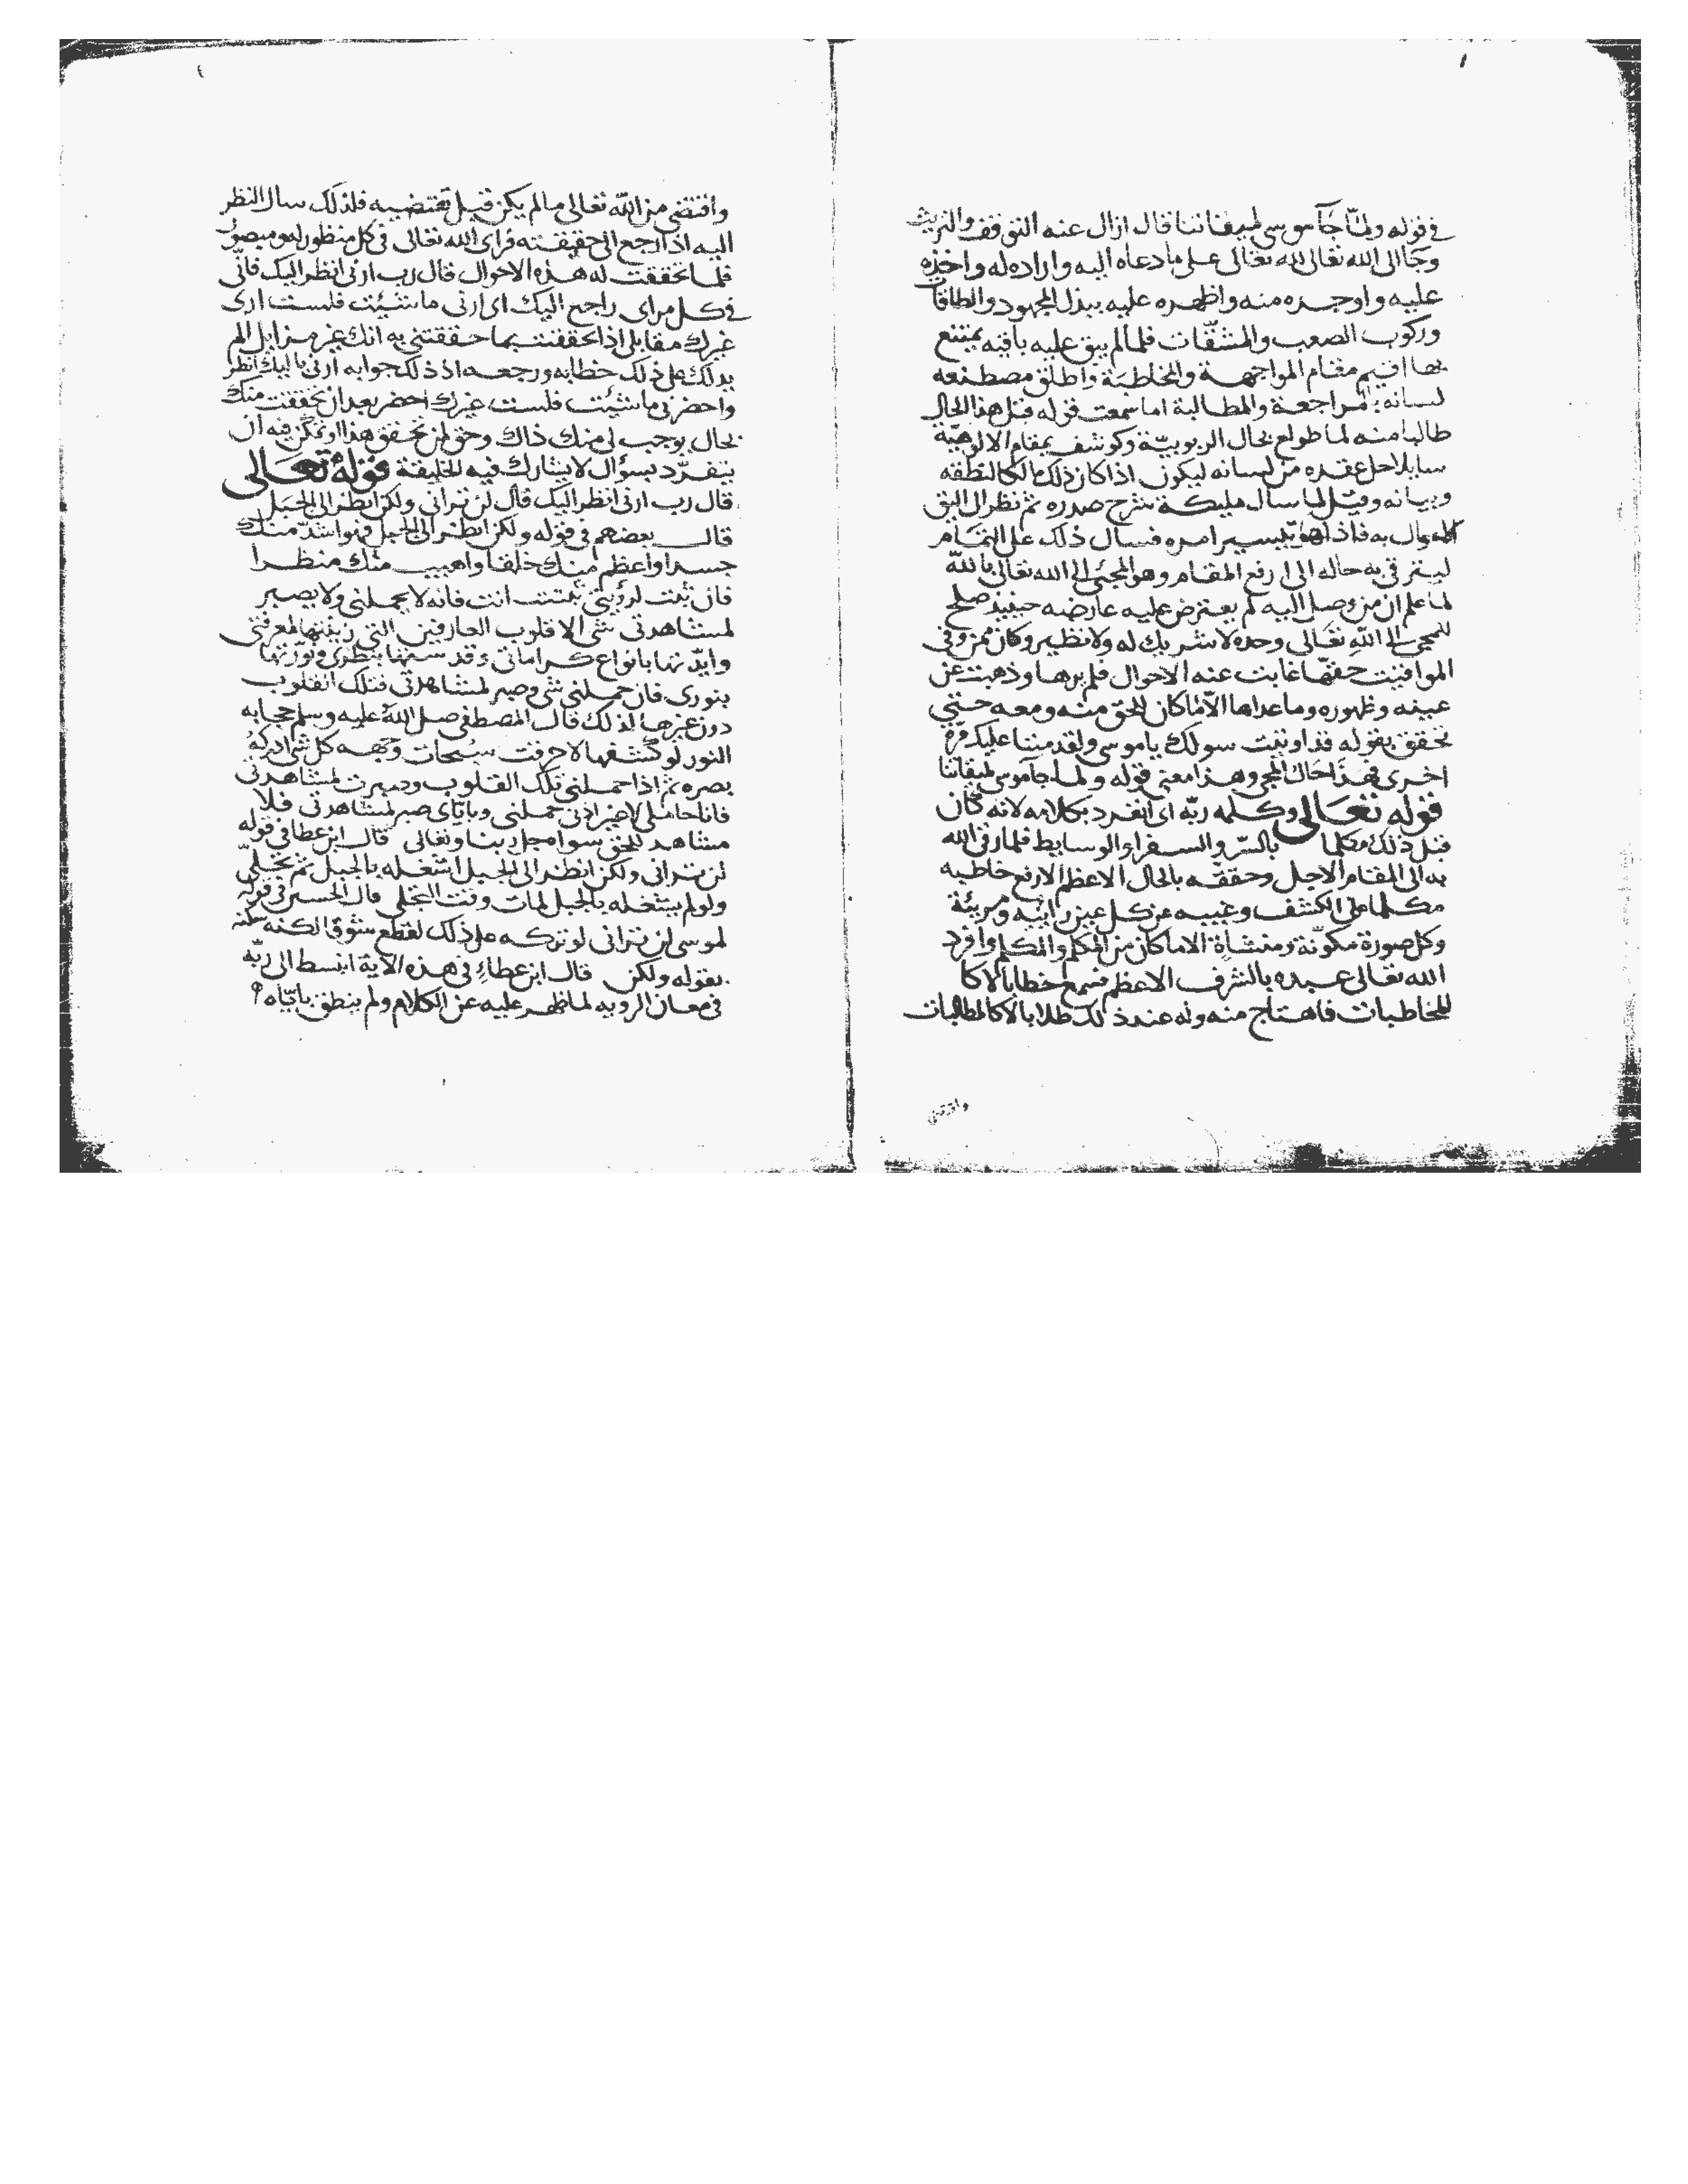 ١
في قوله ولمّا جآ موسى لميقاتنا قال ازال عنه التوقف والتريث
وجآ الى الله تعالى لله تعالى على ما دعاه اليه واراده له واخذه
عليه واوجده منه واظهره عليه ببذل المجهود والطاقات
وركوب الصعب والمشقّات فلما لم يبق عليه باقيه يمتنع
بها اقيم مقام المواجهة والمخاطبة واطلق مصطنعه
لسانه بالمراجعة والمطالبة اما سمعت قوله قبل هذا الحال
طالبا منه لما طولع بحال الربوبيّة وكوشف بمقام الالوهيّة
سايلا حل عقده من لسانه ليكون اذا كان ذلك مالكا لنطقه
وبيانه وقيل لما سال مليكه شرح صدره ثم نظر الى اليق
الاحوال به فاذا هو تيسير امره فسال ذلك على التمام
ليترقى به حاله الى ارفع المقام وهو المجئ الى الله تعالى بالله
لما علم ان من وصل اليه لم يعترض عليه عارضه حينيذ صلح
للمجى الى الله تعالى وحده لا شريك له ولا نظير وكان ممن وفى
المواقيت حقّها غابت عنه الاحوال فلم يرها وذهبت عن
عينه وظهوره وما عداها الّا ما كان للحق منه ومعه حتى
تحقق بقوله قد اوتيت سولك ياموسى ولقد مننا عليك مرّة
اخرى فهذا حال المجى وهذا معنى قوله ولما جآ موسى لميقاتنا
قوله تعالى وكلمه ربّه اى انفرد بكلامه لانه كان
قبل ذلك مكلما بالسّر والسفراء والوسايط فلما رقى الله
به الى المقام الاجل وحققه بالحال الاعظم الارفع خاطبه
مكلما على الكشف وغيبه عن كل عين رايئه ومريئة
وكل صورة مكوّنة ومنشاة الا ما كان من المكلم والمكلم وافرد
الله تعالى عبده بالشرف الاعظم فسمع خطابا لا كا
للمخاطبات فاهتاج منه وله عند ذلك طلابا لا كالمطالبات
واقتضى
٢
واقتضى من الله تعالى ما لم يكن قبل تقتضيه فلذلك سال النظر
اليه اذا رجع الى حقيقته فراى الله تعالى في كل منظور له ومبصور
فلما تحققت له هذه الاحوال قال رب ارنى انظر اليك فانّى
في كل مراى راجع اليك اى ارنى ما شيئت فلست ارى
غيرك مقابلى اذا تحققت بما حققتنى به انك غير مزايل الم
يدلك على ذلك خطابه ورجعه اذ ذلك جوابه ارنى يا اليك انظر
واحضرنى ما شيئت فلست غيرك احضر بعد ان تحققت منك
بحال يوجب لى منك ذاك وحق لمن تحقق هذا او تمكّن فيه ان
ينفرّد بسؤال لا يشارك فيه الخليقة قوله تعالى
قال رب ارنى انظر اليك قال لن ترانى ولكن انظر الى الجبل
قال بعضهم في قوله ولكن انظر الى الجبل فهو اشدّ منك
جسدا واعظم منك خلقا واهيب منك منظرا
فان ثبت لرؤيتى ثبتت انت فانه لا يحملنى ولا يصبر
لمشاهدتى شى الا قلوب العارفين التى زينتها لمعرفتى
وايّدتها بانواع كراماتى وقد ستها بنظرى ونوّرتها
بنورى فان حملنى شى وصبر لمشاهدتى فتلك القلوب
دون غيرها لذلك قال المصطفى صلى الله عليه وسلم حجابه
النور لو كشفها لاحرقت سبحات وجهه كل شى ادركهُ
بصره ثم اذا حملتنى تلك القلوب وصبرت لمشاهدتى
فانا حاملى لا غير اذ بى حملنى وباياى صبر لمشاهدتى فلا
مشاهد للحق سواه جل ربنا وتعالى قال ابن عطا في قوله
لن ترانى ولكن انظر الى الجبل اشغله بالجبل ثم تجلىّ
ولو لم يشغله بالجبل لمات وقت التجلى قال الحسين في قوله
لموسى لن ترانى لو تركه على ذلك لقطع شوقا لكنه سكنه
بقوله ولكن قال ابن عطاء في هذه الآية انبسط الى ربّه
في معان الرويه لما ظهر عليه عن الكلام ولم ينطق باياه